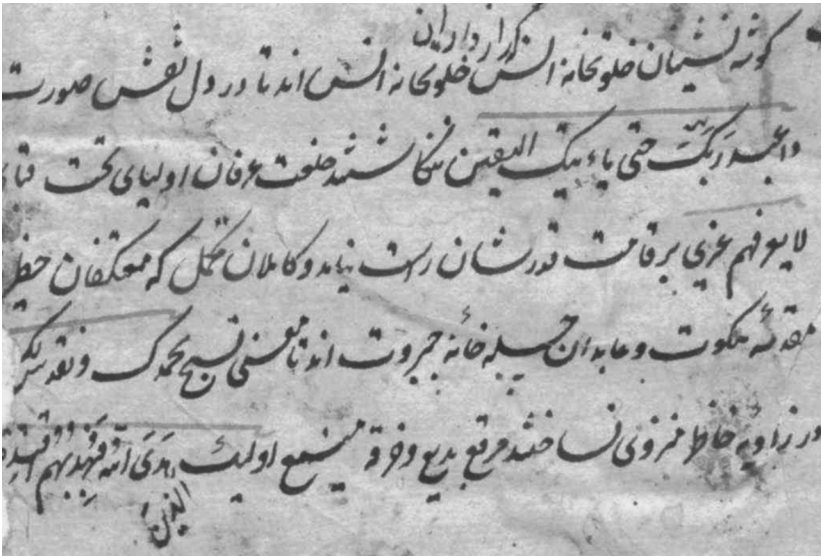 کرارداران
کوشه نشینان خلوتخانه انس خلوتخانه انس اند تا در دل نقش صورت
واعبد ربک حتی یاتیک الیقین ننکاشتند خلعت عرفان اولیای تحت قبای
لا یعرفهم غیری بر قامت قدرشان راست نیاید و کاملان مکمل که معتکفان حظیره
مقدسه ملکوت و عابدان چله خانه جبروت اند تا معنی نسبح بحمدک و نقدس لک
در زاویه خاطر منزوی نساختند مرقع بدیع و خرقه اولئک هدی الله فبهدیهم اقتده
الذین